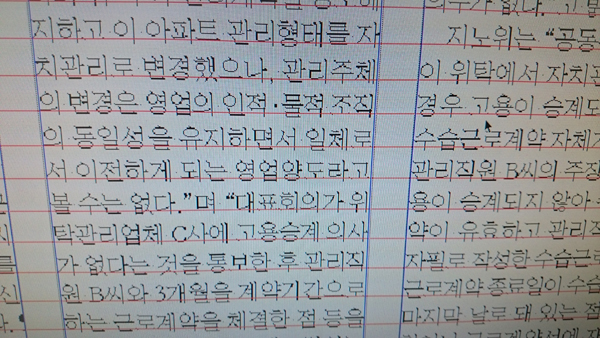 지하고 이 아파트 관리형태를 자
치관리로 변경했으나, 관리주체
의 변경은 영업의 인적·물적 조직
의 동일성을 유지하면서 일체로
서 이전하게 되는 영업양도라고
볼 수는 없다.”며 “대표회의가 위
탁관리업체 C사에 고용승계 의사
가 없다는 것을 통보한 후 관리직
원 B씨와 3개월을 계약기간으로
하는 근로계약을 체결한 점 등을
지노위는 “공동
이 위탁에서 자치관
경우 고용이 승계도
수습근로계약 자체가
관리직원 B씨의 주장
용이 승계되지 않아
약이 유효하고 관리직
자필로 작성한 수습근로
근로계약 종료일이 수습
마지막 날로 돼 있는 점